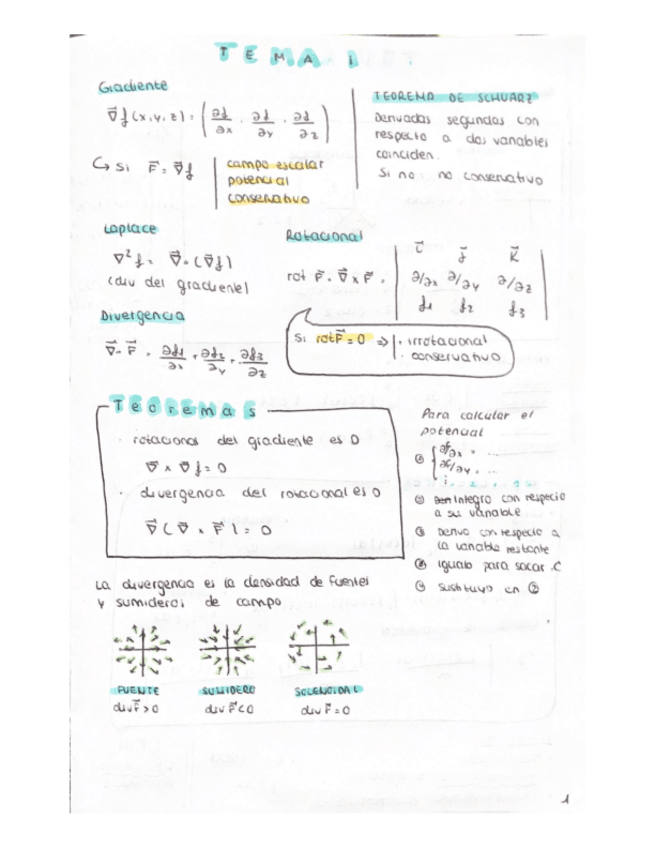 TEMA 1
Gradiente
∇⃗f(x,y,z) = (∂f/∂x , ∂f/∂y , ∂f/∂z)
↳ Si F⃗ = ∇⃗f | campo escalar
potencial
conservativo
TEOREMA DE SCHWARZ
Derivadas segundas con
respecto a dos variables
coinciden.
Si no: no conservativo
Laplace
∇²f = ∇⃗·(∇⃗f)
(div del gradiente)
Rotacional
rot F⃗ = ∇⃗ x F⃗ =
i⃗ j⃗ k⃗
∂/∂x ∂/∂y ∂/∂z
f1 f2 f3
Divergencia
∇⃗·F⃗ = ∂f1/∂x + ∂f2/∂y + ∂f3/∂z
Si rotF⃗ = 0 ⇒ · irrotacional
· conservativo
Teoremas
· rotacional del gradiente es 0
∇ x ∇f = 0
· divergencia del rotacional es 0
∇⃗(∇⃗ x F⃗) = 0
Para calcular el
potencial
∂f/∂x = ...
∂f/∂y = ...
Integro con respecto
a su variable
Derivo con respecto a
la variable restante
Igualo para sacar C
Sustituyo en ②
La divergencia es la densidad de fuentes
y sumideros de campo
FUENTE SUMIDERO SOLENOIDAL
divF⃗>0 div F⃗<0 div F⃗=0
1